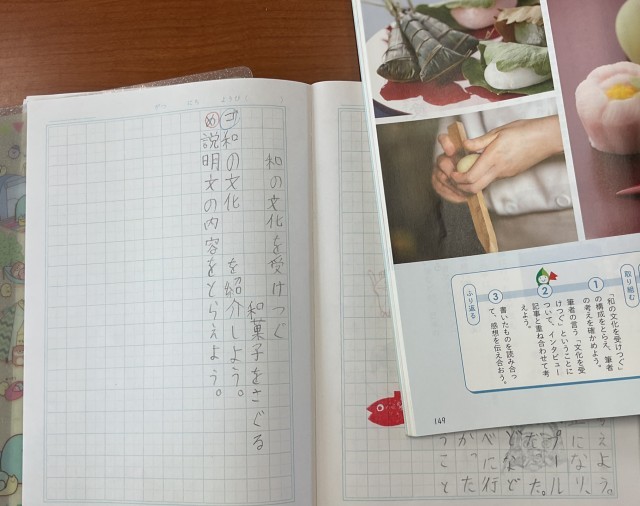 和の文化を受けつぐ
和菓子をさぐる
ゴ和の文化　を紹介しよう。
め説明文の内容をとらえよう。
取り組む
1 「和の文化を受けつぐ」
の構成をとらえ、筆者
の考えを確かめよう。
2 筆者の言う「文化を受
けつぐ」ということに
ついて、インタビュー
記事と重ね合わせて考
えよう。
ふり返る
3 書いたものを読み合っ
て、感想を伝え合おう。
149
えよう。
になり、
プール
た。
どた。
べに行
かった
うこと